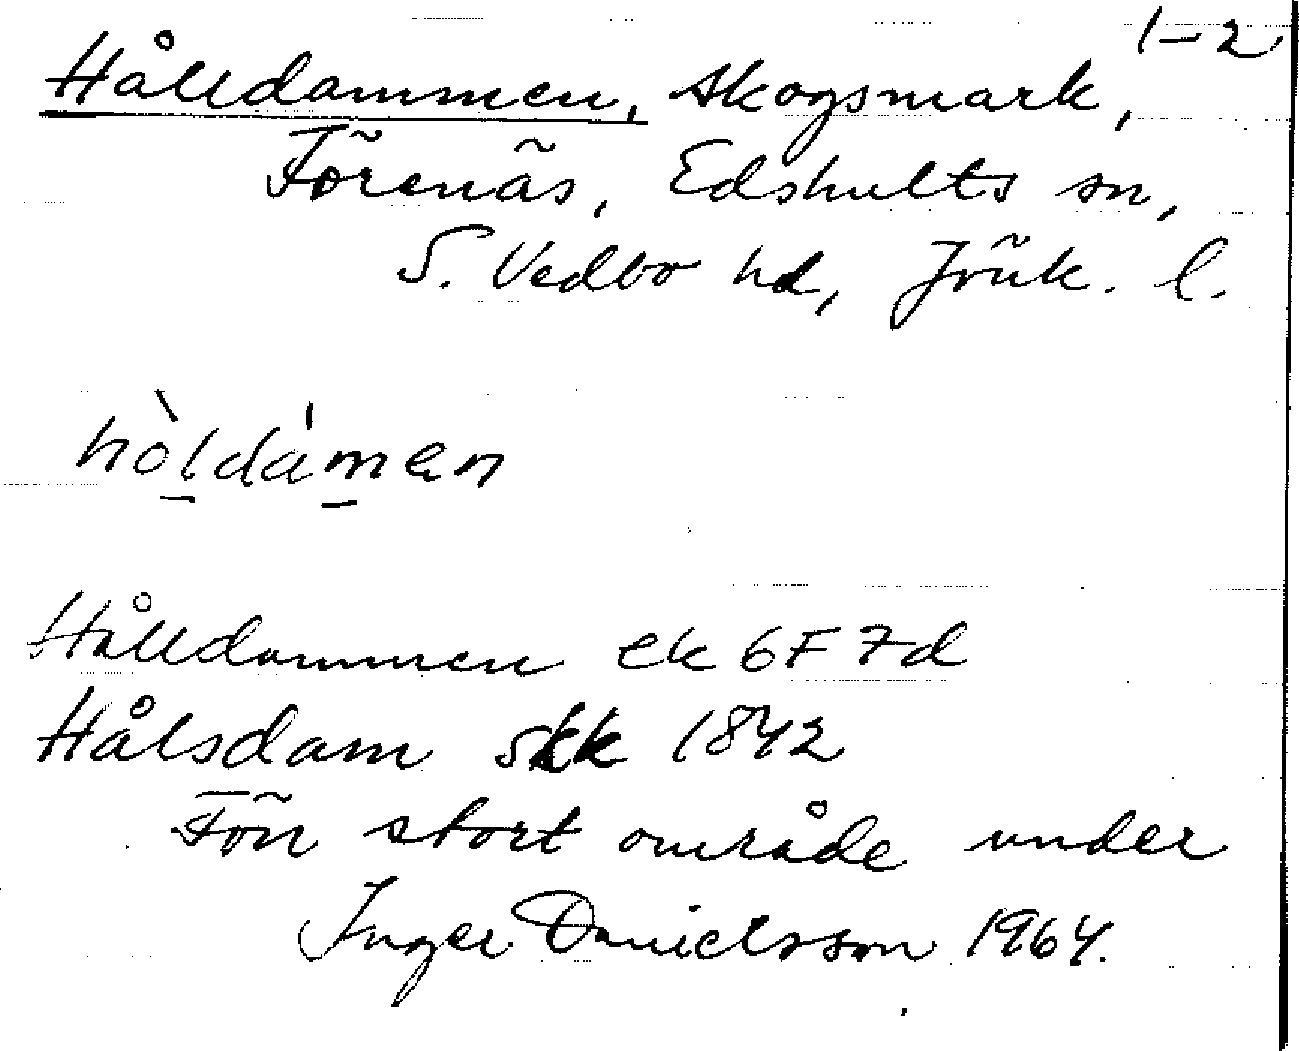 1-2
Hålldammen, skogsmark,
Förenäs, Edshults sn,
S. Vedbo hd, Jönk. l.
hòldàmen
Hålldammen ek 6F 7d
Hålsdam skk 1842
stort område under
Inger Danielsson 1964.